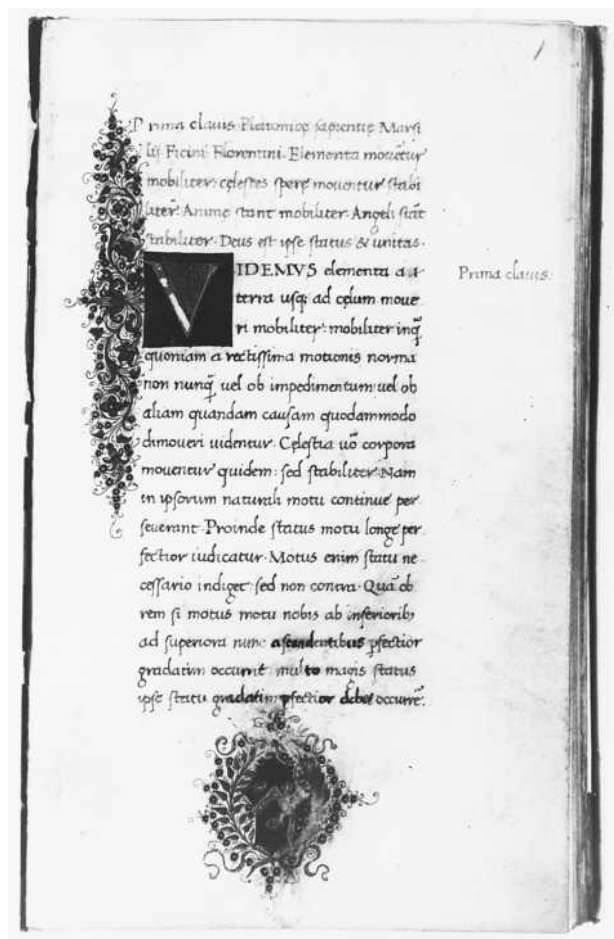 1
Prima clauis Platonicę sapientię Marsi
lij Ficini Florentini. Elementa mouẽtur
mobiliter: cęlestes sperę mouentur stabi
liter. Animę stant mobiliter. Angeli stãt
stabiliter. Deus est ipse status & unitas.
VIDEMVS elementa a
terra usq; ad cęlum moue
ri mobiliter: mobiliter inq̃
quoniam a rectissima motionis norma
non nunq̃ uel ob impedimentum uel ob
aliam quandam causam quodammodo
dimoueri uidentur. Cęlestia uõ corpora
mouentur quidem: sed stabiliter. Nam
in ipsorum naturali motu continue per
seuerant. Proinde status motu longe per
fectior iudicatur. Motus enim statu ne
cessario indiget: sed non contra. Quã ob
rem si motus motu nobis ab inferiorib;
ad superiora nunc ascendentibus ꝑfectior
gradatim occurrit multo magis status
ipse statu gradatim ꝑfectior debet occurrẽ.
Prima clauis.